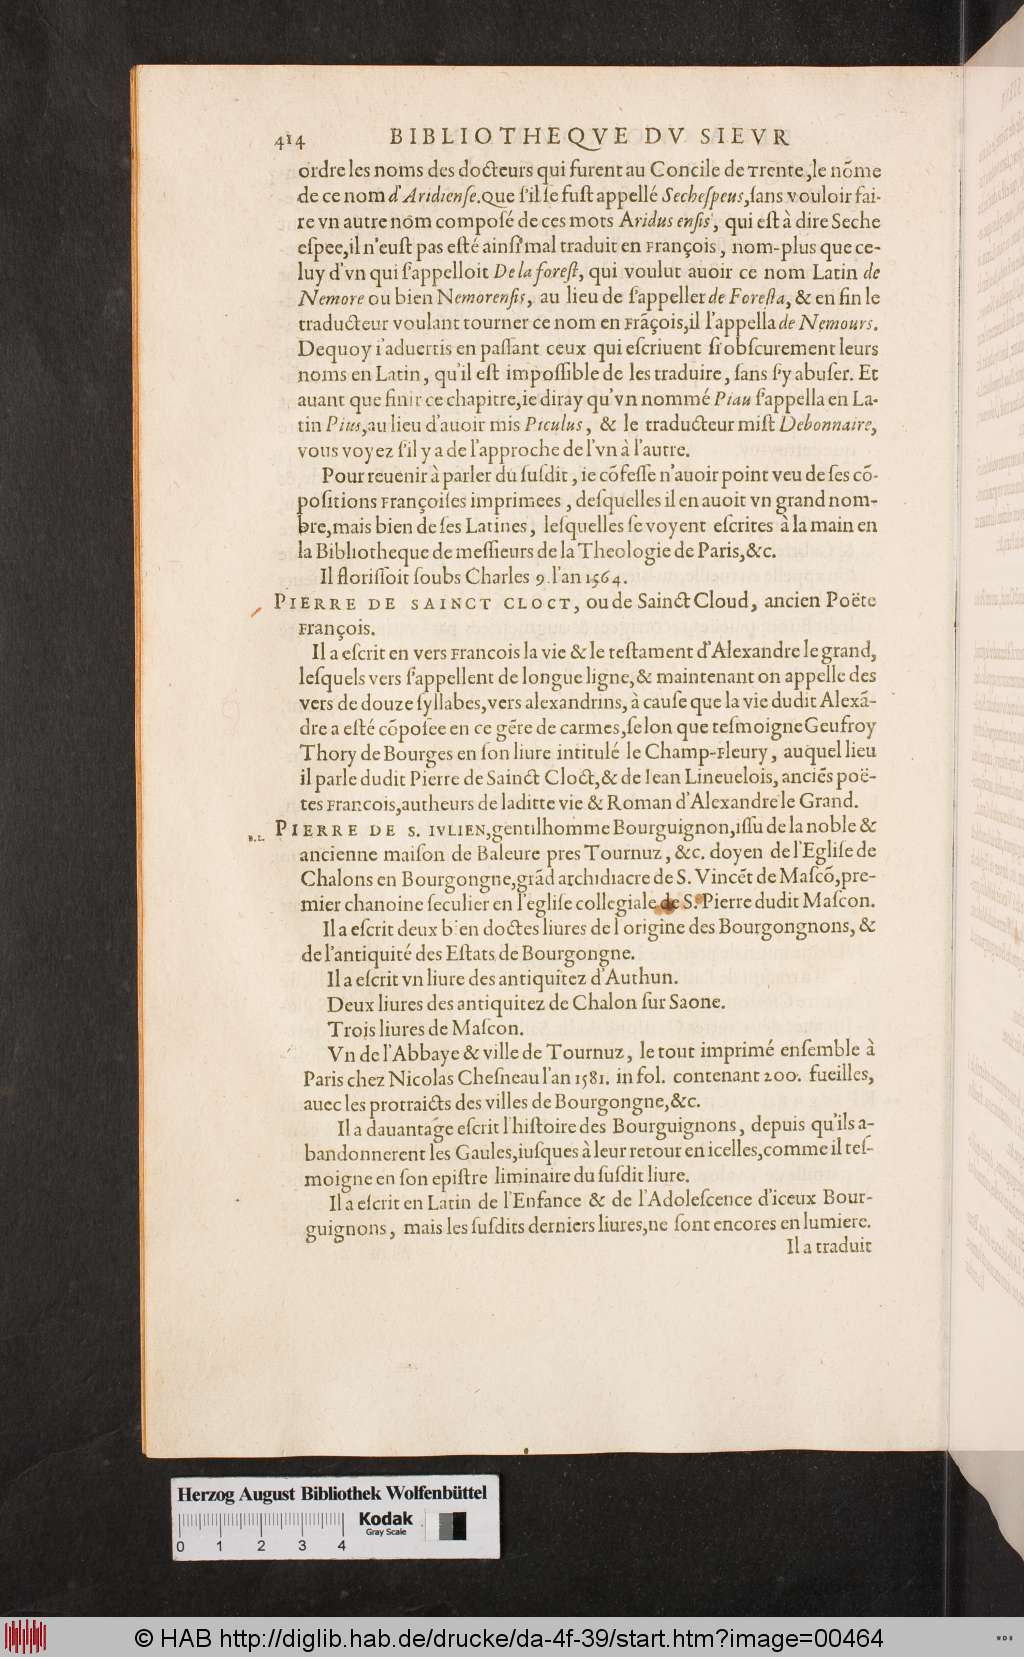 414 BIBLIOTHEQVE DV SIEVR
ordre les noms des docteurs qui furent au Concile de Trente, le nõme
de ce nom d'Aridiense. Que s'il se fust appellé Sechespeus, sans vouloir fai-
re vn autre nom composé de ces mots Aridus ensis, qui est à dire Seche
espee, il n'eust pas esté ainsi mal traduit en François, nom-plus que ce-
luy d'vn qui s'appelloit De la forest, qui voulut auoir ce nom Latin de
Nemore ou bien Nemorensis, au lieu de s'appeller de Foresta, & en fin le
traducteur voulant tourner ce nom en Frãçois, il l'appella de Nemours.
Dequoy i'aduertis en passant ceux qui escriuent si obscurement leurs
noms en Latin, qu'il est impossible de les traduire, sans s'y abuser. Et
auant que finir ce chapitre, ie diray qu'vn nommé Piau s'appella en La-
tin Pius, au lieu d'auoir mis Piculus, & le traducteur mist Debonnaire,
vous voyez s'il y a de l'approche de l'vn à l'autre.
Pour reuenir à parler du susdit, ie cõfesse n'auoir point veu de ses cõ-
positions Françoises imprimees, desquelles il en auoit vn grand nom-
bre, mais bien de ses Latines, lesquelles se voyent escrites à la main en
la Bibliotheque de messieurs de la Theologie de Paris, &c.
Il florissoit soubs Charles 9. l'an 1564.
PIERRE DE SAINCT CLOCT, ou de Sainct Cloud, ancien Poëte
François.
Il a escrit en vers Francois la vie & le testament d'Alexandre le grand,
lesquels vers s'appellent de longue ligne, & maintenant on appelle des
vers de douze syllabes, vers alexandrins, à cause que la vie dudit Alexã-
dre a esté cõposee en ce gẽre de carmes, selon que tesmoigne Geufroy
Thory de Bourges en son liure intitulé le Champ-Fleury, auquel lieu
il parle dudit Pierre de Sainct Cloct, & de Iean Lineuelois, anciẽs poë-
tes Francois, autheurs de laditte vie & Roman d'Alexandre le Grand.
B.L. PIERRE DE S. IVLIEN, gentilhomme Bourguignon, issu de la noble &
ancienne maison de Baleure pres Tournuz, &c. doyen de l'Eglise de
Chalons en Bourgongne, grãd archidiacre de S. Vincẽt de Mascõ, pre-
mier chanoine seculier en l'eglise collegiale de S. Pierre dudit Mascon.
Il a escrit deux bien doctes liures de l'origine des Bourgongnons, &
de l'antiquité des Estats de Bourgongne.
Il a escrit vn liure des antiquitez d'Authun.
Deux liures des antiquitez de Chalon sur Saone.
Trois liures de Mascon.
Vn de l'Abbaye & ville de Tournuz, le tout imprimé ensemble à
Paris chez Nicolas Chesneau l'an 1581. in fol. contenant 200. fueilles,
auec les protraicts des villes de Bourgongne, &c.
Il a dauantage escrit l'histoire des Bourguignons, depuis qu'ils a-
bandonnerent les Gaules, iusques à leur retour en icelles, comme il tes-
moigne en son epistre liminaire du susdit liure.
Il a escrit en Latin de l'Enfance & de l'Adolescence d'iceux Bour-
guignons, mais les susdits derniers liures, ne sont encores en lumiere.
Il a traduit
Herzog August Bibliothek Wolfenbüttel
Kodak
Gray Scale
0 1 2 3 4
© HAB http://diglib.hab.de/drucke/da-4f-39/start.htm?image=00464